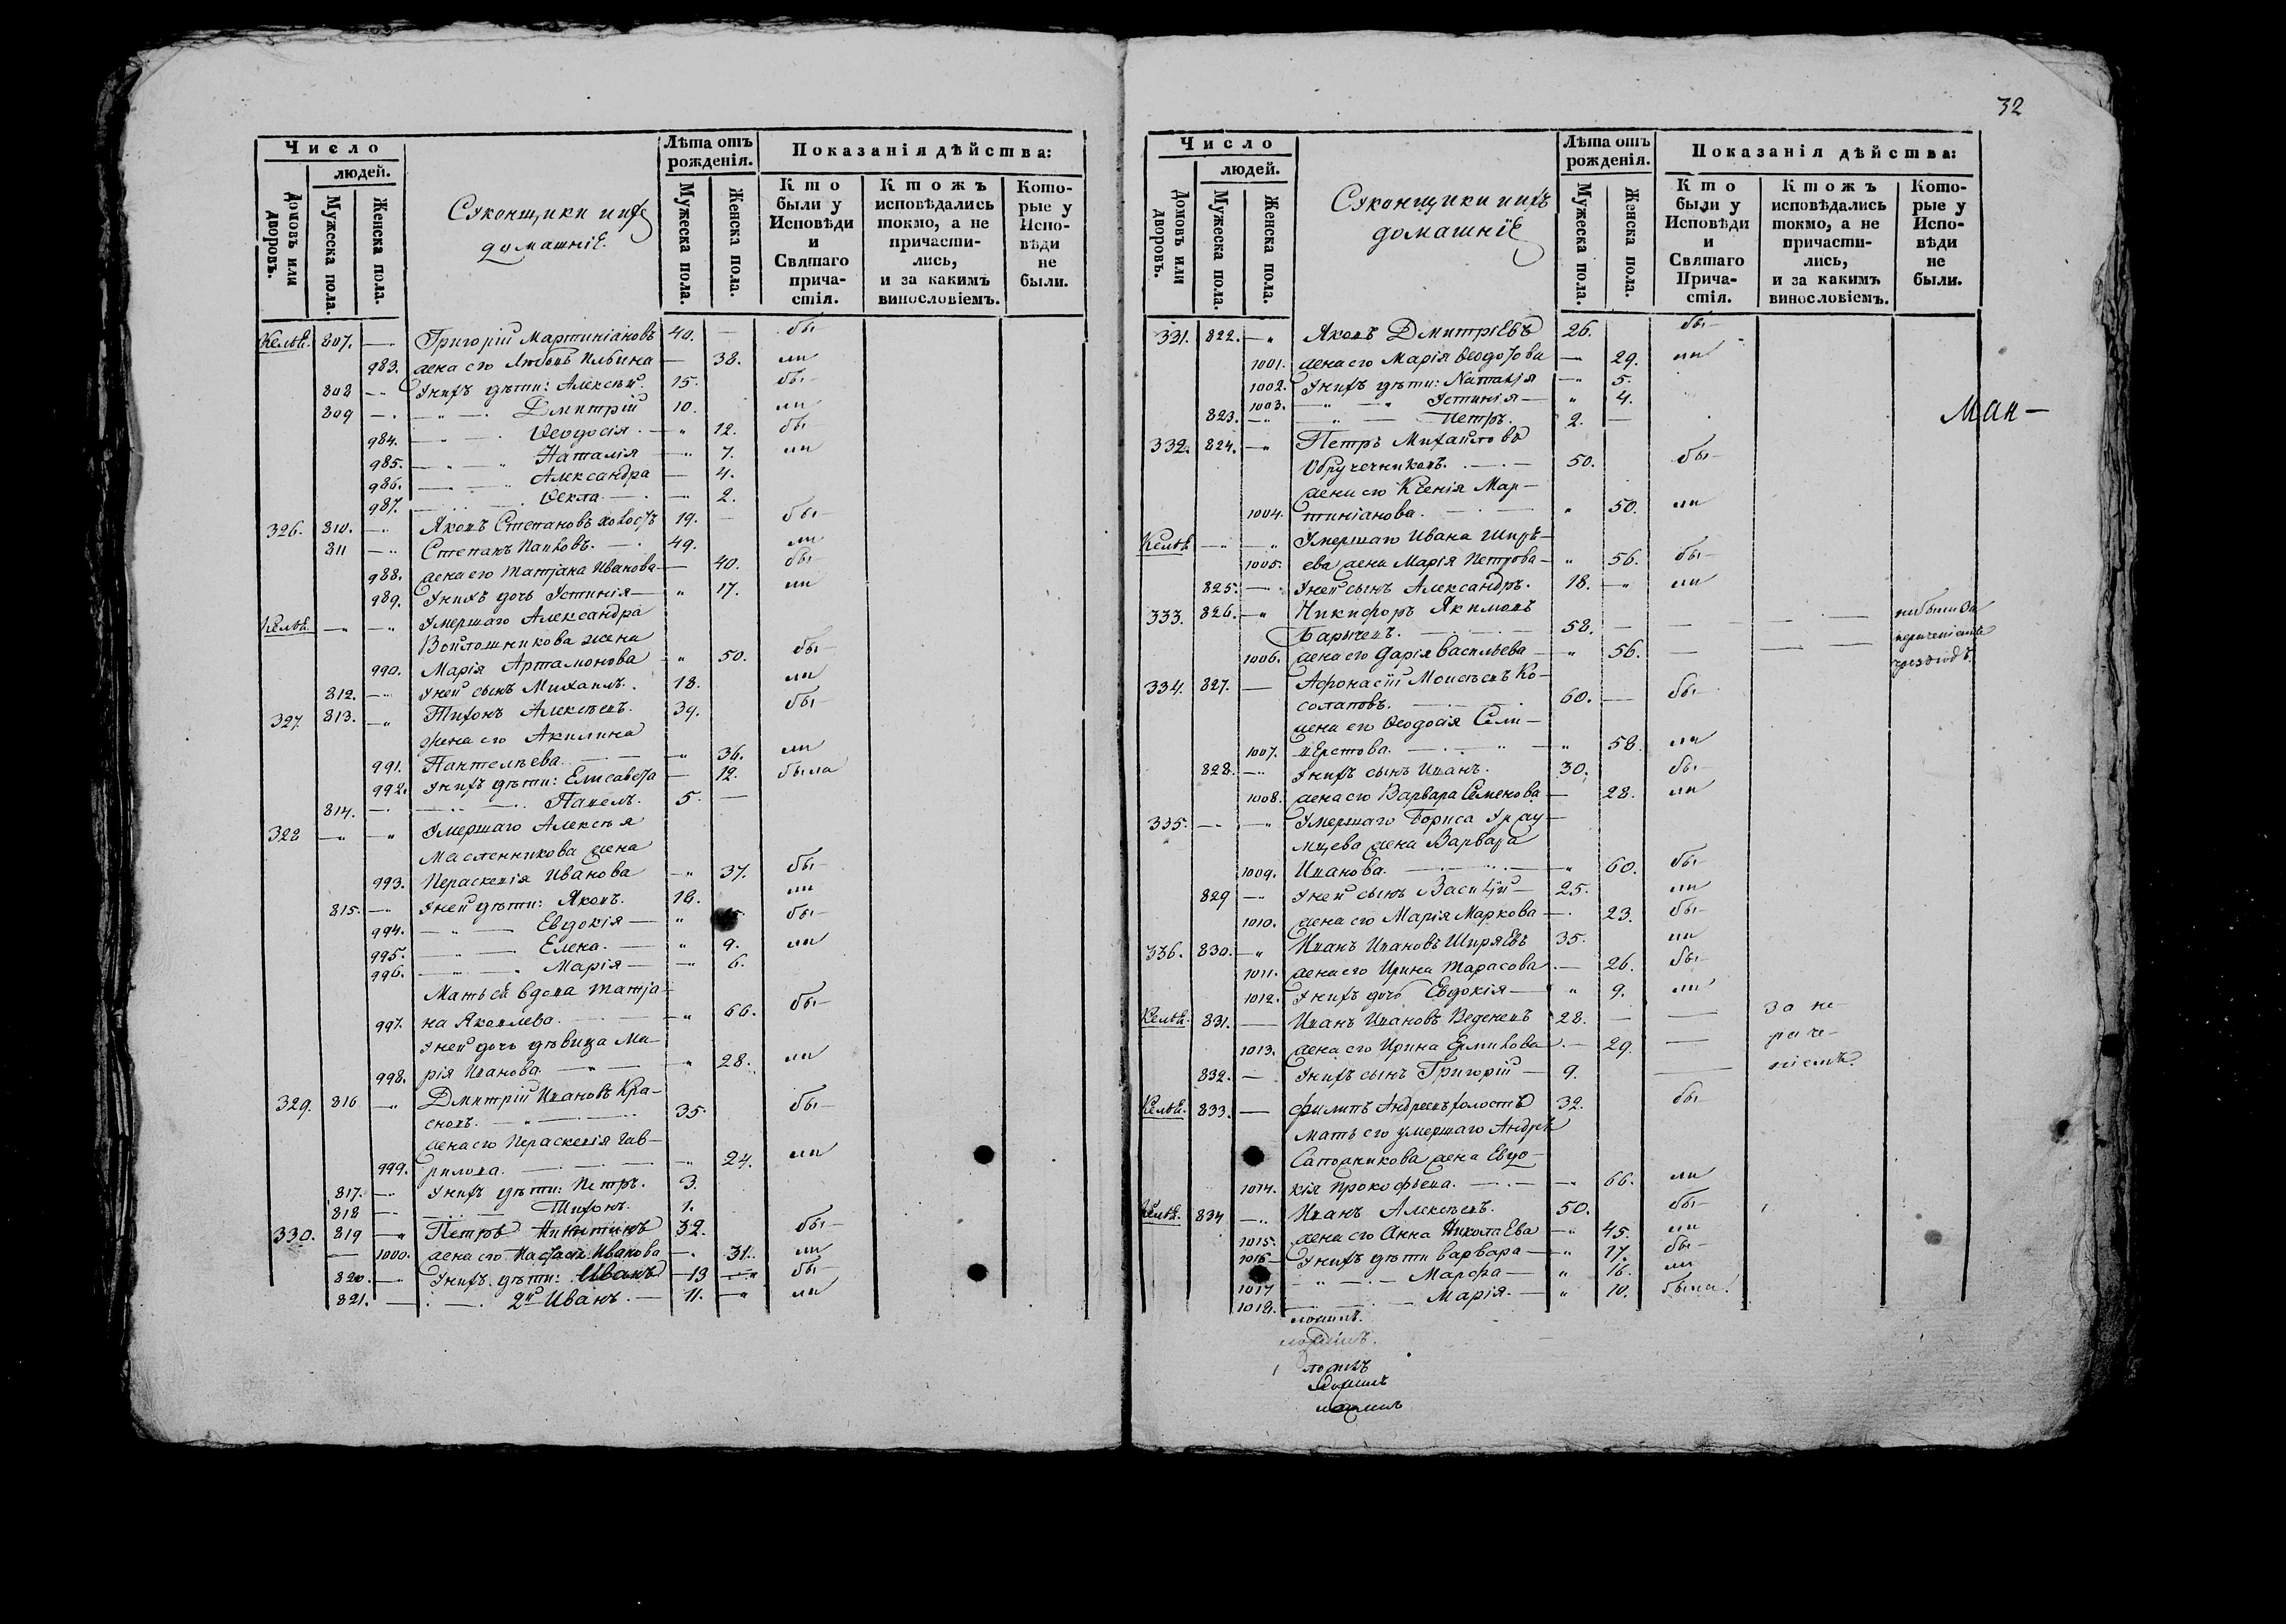 Число
людей.
Домовъ или дворовъ.
Мужеска пола.
Женска пола.
Суконщики и ихъ
домашніе
Лѣта отъ рожденія.
Мужеска пола.
Женска пола.
Показанія дѣйства:
Кто были у Исповѣди и Святаго причастія.
Ктожъ исповѣдались токмо, а не причастились, и за какимъ винословіемъ.
Которые у Исповѣди не были.
807. — Григорій Мартиніановъ 40. — бы
983. жена его Любовь Ильина — 38. ли
808 — У нихъ дѣти: Алексѣй 15. бы
809 — Дмитрій 10. ли
984. — Ѳеодосія — 12. бы
985. — Наталія — 7. ли
986. — Александра — 4.
987. — Ѳекла — 2.
326. 810. — Яковъ Степановъ холостъ 19. — бы
811 — Степанъ 49. ли
988. жена его Татіана Иванова — 40. бы
989. У нихъ дочь Устинія — 17. ли
— Умершаго Александра
Войлошникова жена
990. Марія Артамонова — 50. бы
812. — У ней сынъ Михаилъ. 18. ли
327. 813. — Тихонъ Алексѣевъ. 39. бы
жена его Акилина
991. Пантелѣева — 36. ли
992. У нихъ дѣти: Елисавета — 12. была
814. — Павелъ. 5. —
328 — Умершаго Алексѣя
Масленникова жена
993. Параскевія Иванова — 37. бы
815. — У ней дѣти: Яковъ. 18. ли
994. — Евдокія — бы
995. — Елена. — 9. ли
996. — Марія — 6.
Мать ей вдова Татіа-
997. на Яковлева. — 66. бы
У ней дочь дѣвица Ма-
998. рія Иванова. — 28. ли
329. 816 — Дмитрій Ивановъ Кра-
сновъ. — 35. бы
жена его Параскевія Гав-
999. рилова. — 24. ли
817. — У нихъ дѣти: Петръ. 3.
818 — Тихонъ. 1.
330. 819 — Петръ Никитинъ 32. бы
— 1000. жена его Настасія Иванова — 31. ли
820. — У нихъ дѣти: Иванъ — 13 — бы
821. — 2й Иванъ. — 11. — ли
32
Число
людей.
Домовъ или дворовъ.
Мужеска пола.
Женска пола.
Суконщики и ихъ
домашніе
Лѣта отъ рожденія.
Мужеска пола.
Женска пола.
Показанія дѣйства:
Кто были у Исповѣди и Святаго Причастія.
Ктожъ исповѣдались токмо, а не причастились, и за какимъ винословіемъ.
Которые у Исповѣди не были.
331. 822. — Яковъ Дмитріевъ 26. бы
1001. жена его Марія Ѳеодотова — 29. ли
1002. У нихъ дѣти: Наталія — 5.
1003. — Устинія — 4.
823. — Петръ. 2. —
332. 824. — Петръ Михайловъ
Обручечниковъ. — 50. бы
жена его Ксенія Мар-
1004. тиніанова. — 50. ли
— Умершаго Ивана Ширя-
1005. ева жена Марія Петрова — 56. бы
825. — У ней сынъ Александръ. 18. — ли
333. 826. — Никифоръ Якимовъ
58. —
1006. жена его Дарія Васильева — 56. —
334. 827. — Афонасій Моисѣевъ Ко-
солаповъ. — 60. — бы
жена его Ѳеодосія Сели-
1007. верстова. — 58. ли
828. — У нихъ сынъ Иванъ. 30. бы
1008. жена его Варвара Семенова — 28. ли
335. — Умершаго Бориса
жена Варвара
1009. Иванова. — 60. бы
829 — У ней сынъ Василій — 25. ли
1010. жена его Марія Маркова — 23. бы
336. 830. — Иванъ Ивановъ Ширяевъ 35. ли
1011. жена его Ирина Тарасова — 26. бы
1012. У нихъ дочь Евдокія — 9. ли
831. — Иванъ Ивановъ Веденеевъ 28. — — за не-
1013. жена его Ирина Ермилова — 29. — раче-
832. — У нихъ сынъ Григорій — 9. — ніемъ.
833. — Филипъ Андреевъ холостъ 32. бы
Мать его умершаго Андрея
Сапожникова жена Евдо-
1014. кія Прокофьева. — 66. ли
834 — Иванъ Алексѣевъ. 50. бы
1015. жена его Анна Николаева — 45. ли
1016 У нихъ дѣти Варвара — 17. бы
1017 — Марфа — 16. ли
1018. — Марія. — 10. была.